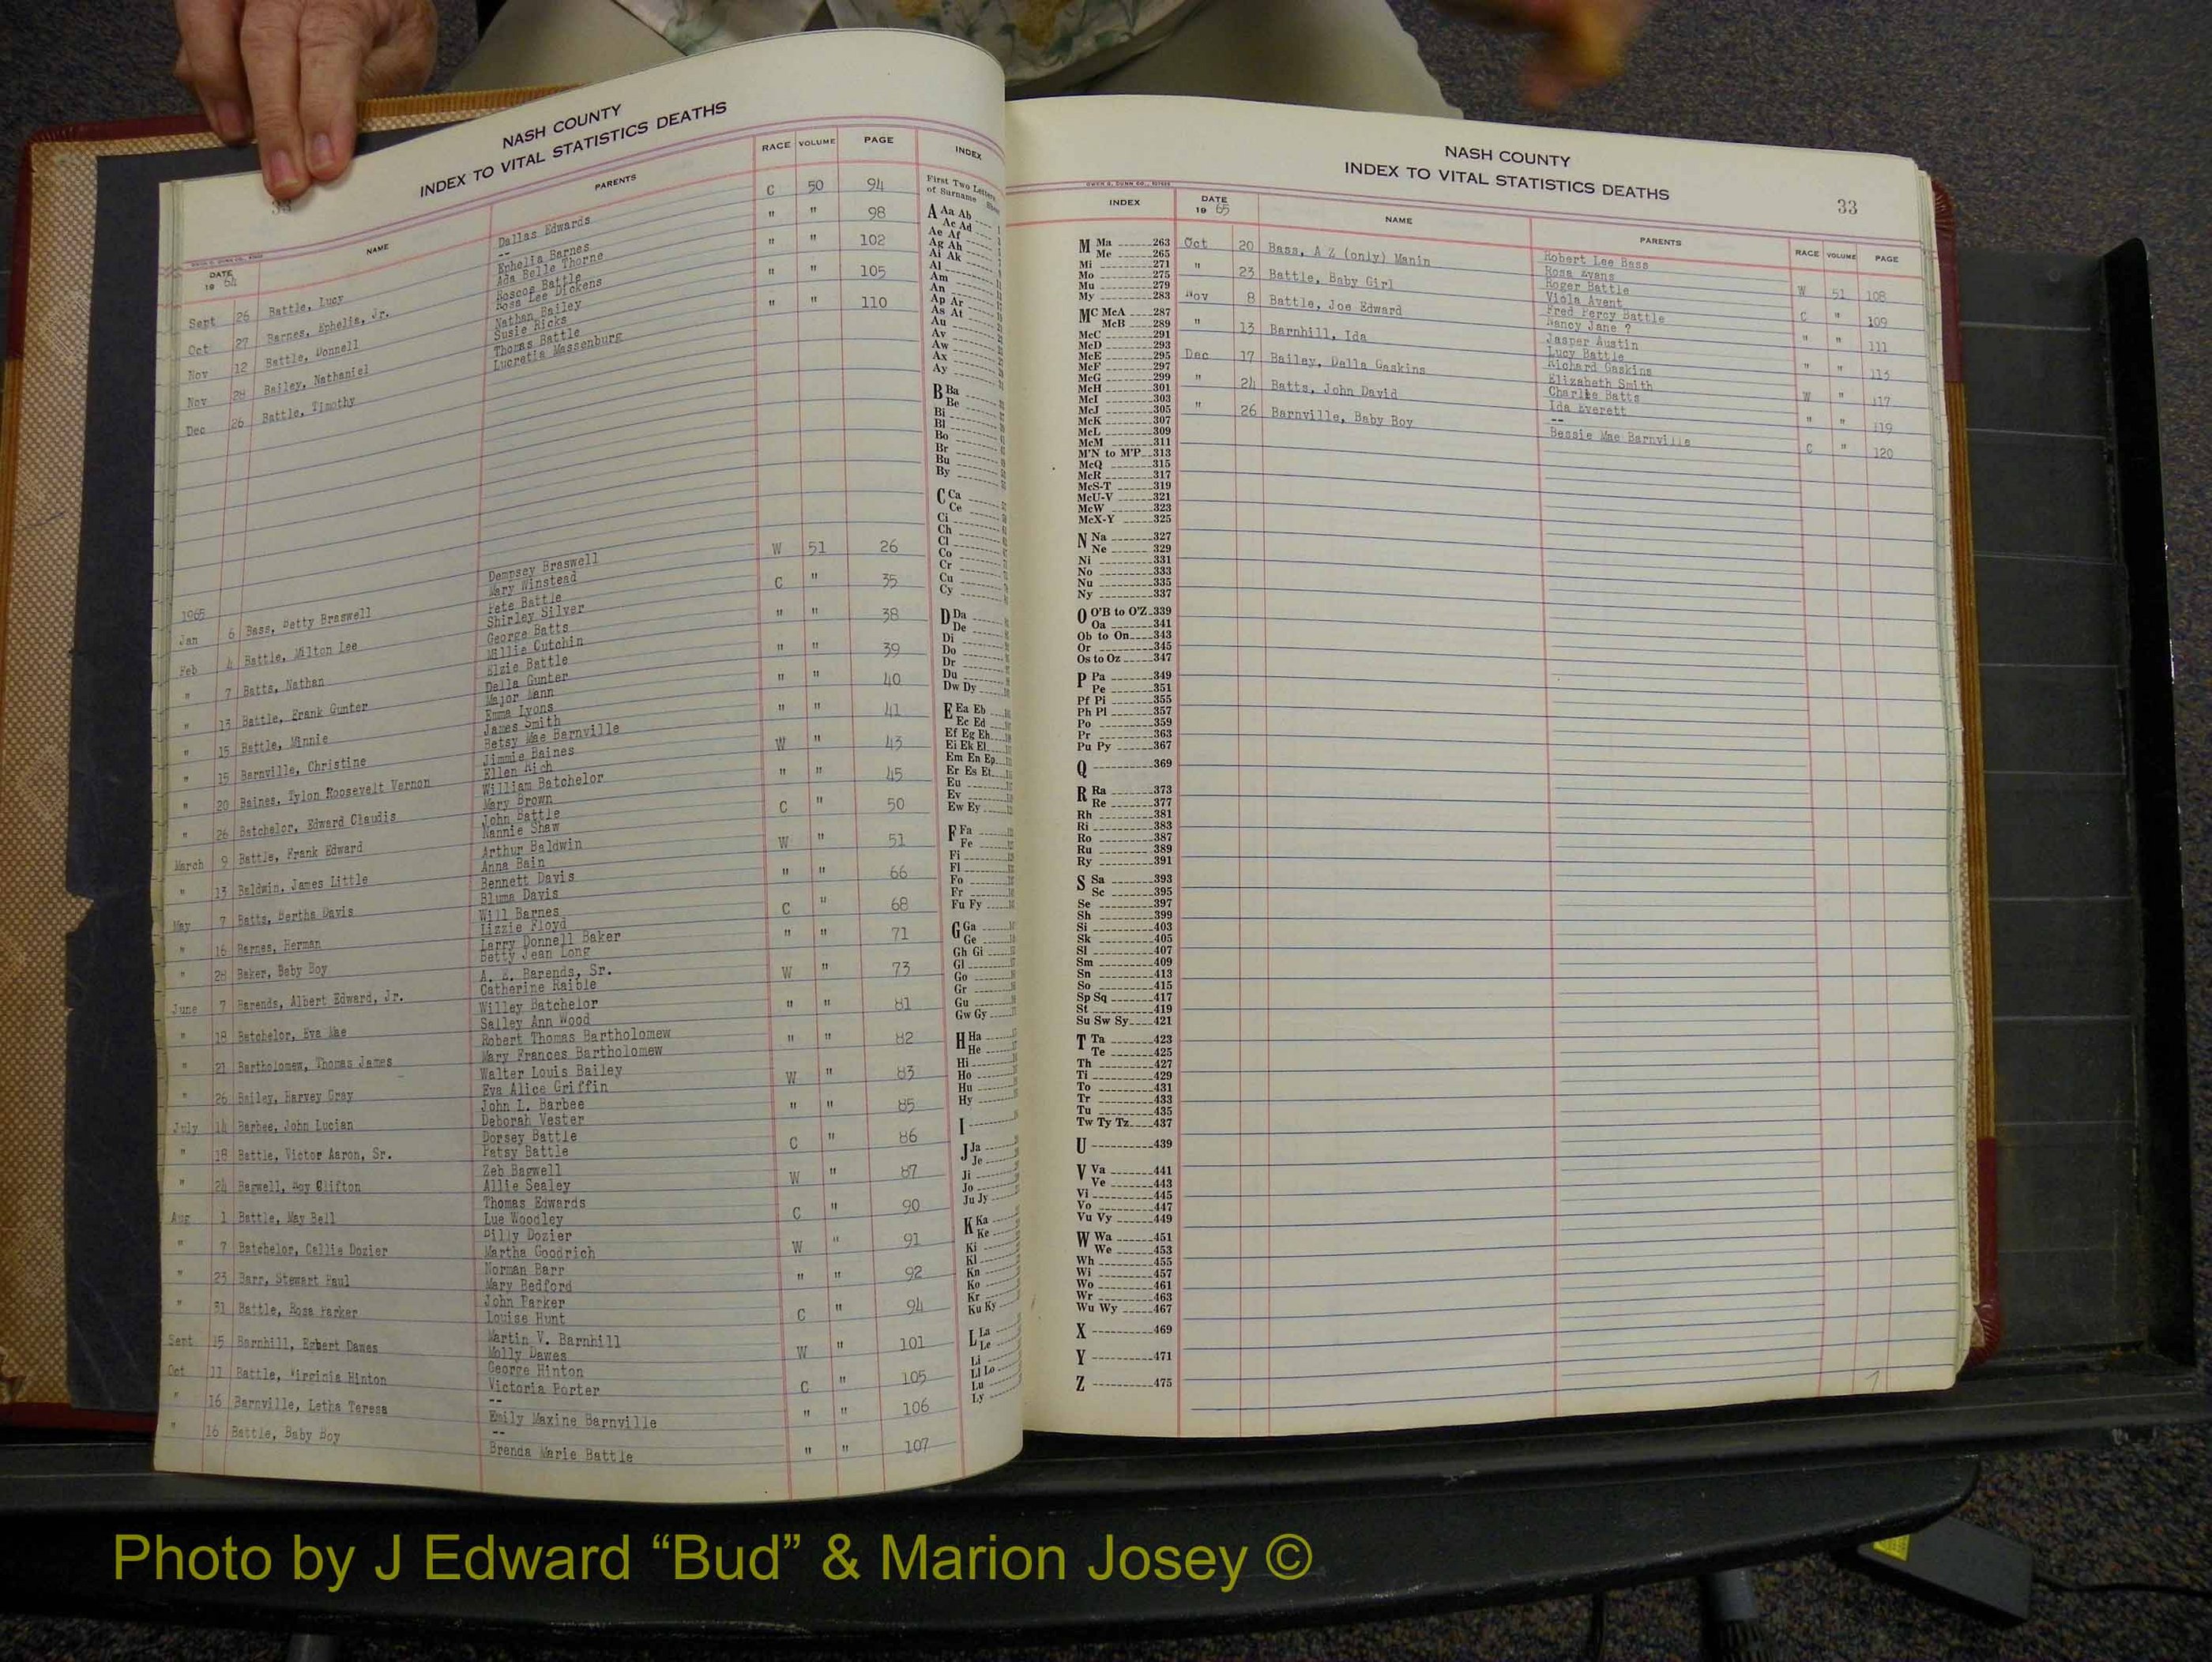 NASH COUNTY
INDEX TO VITAL STATISTICS DEATHS
33
DATE 19 64 NAME PARENTS RACE VOLUME PAGE
Sept 26 Battle, Lucy Dallas Edwards C 50 94
--
Oct 27 Barnes, Ephelia, Jr. Ephelia Barnes " " 98
Ada Belle Thorne
Nov 12 Battle, Donnell Roscoe Battle " " 102
Rosa Lee Dickens
Nov 28 Bailey, Nathaniel Nathan Bailey " " 105
Susie Ricks
Dec 26 Battle, Timothy Thomas Battle " " 110
Lucretia Massenburg
1965
Jan 6 Bass, Betty Braswell Dempsey Braswell W 51 26
Mary Winstead
Feb 4 Battle, Milton Lee Pete Battle C " 35
Shirley Silver
" 7 Batts, Nathan George Batts " " 38
Millie Cutchin
" 13 Battle, Frank Gunter Elzie Battle " " 39
Della Gunter
" 15 Battle, Minnie Major Mann " " 40
Emma Lyons
" 15 Barnville, Christine James Smith " " 41
Betsy Mae Barnville
" 20 Baines, Tylon Roosevelt Vernon Jimmie Baines W " 43
Ellen Rich
" 26 Batchelor, Edward Claudis William Batchelor " " 45
Mary Brown
March 9 Battle, Frank Edward John Battle C " 50
Nannie Shaw
" 13 Baldwin, James Little Arthur Baldwin W " 51
Anna Bain
May 7 Batts, Bertha Davis Bennett Davis " " 66
Bluma Davis
" 16 Barnes, Herman Will Barnes C " 68
Lizzie Floyd
" 28 Baker, Baby Boy Larry Donnell Baker " " 71
Betty Jean Long
June 7 Barends, Albert Edward, Jr. A. E. Barends, Sr. W " 73
Catherine Raible
" 18 Batchelor, Eva Mae Willey Batchelor " " 81
Salley Ann Wood
" 21 Bartholomew, Thomas James Robert Thomas Bartholomew " " 82
Mary Frances Bartholomew
" 26 Bailey, Harvey Gray Walter Louis Bailey W " 83
Eva Alice Griffin
July 14 Barbee, John Lucian John L. Barbee " " 85
Deborah Vester
" 18 Battle, Victor Aaron, Sr. Dorsey Battle C " 86
Patsy Battle
" 24 Bagwell, Roy Clifton Zeb Bagwell W " 87
Allie Sealey
Aug 1 Battle, May Bell Thomas Edwards C " 90
Lue Woodley
" 7 Batchelor, Callie Dozier Billy Dozier W " 91
Martha Goodrich
" 23 Barr, Stewart Paul Norman Barr " " 92
Mary Bedford
" 31 Battle, Rosa Parker John Parker C " 94
Louise Hunt
Sept 15 Barnhill, Egbert Dawes Martin V. Barnhill W " 101
Molly Dawes
Oct 11 Battle, Virginia Hinton George Hinton C " 105
Victoria Porter
" 16 Barnville, Letha Teresa -- " " 106
Emily Maxine Barnville
" 16 Battle, Baby Boy -- " " 107
Brenda Marie Battle
INDEX
First Two Letters
of Surname
A Aa Ab
Ac Ad
Ae Af
Ag Ah
Ai Ak
Al
Am
An
Ap Ar
As At
Au
Av
Aw
Ax
Ay
B Ba
Be
Bi
Bl
Bo
Br
Bu
By
C Ca
Ce
Ci
Ch
Cl
Co
Cr
Cu
Cy
D Da
De
Di
Do
Dr
Du
Dw Dy
E Ea Eb
Ec Ed
Ef Eg Eh
Ei Ek El
Em En Ep
Er Es Et
Eu
Ev
Ew Ey
F Fa
Fe
Fi
Fl
Fo
Fr
Fu Fy
G Ga
Ge
Gh Gi
Gl
Go
Gr
Gu
Gw Gy
H Ha
He
Hi
Ho
Hu
Hy
I
J Ja
Je
Ji
Jo
Ju Jy
K Ka
Ke
Ki
Kl
Kn
Ko
Kr
Ku Ky
L La
Le
Li
Ll Lo
Lu
Ly
NASH COUNTY
INDEX TO VITAL STATISTICS DEATHS
33
INDEX
M Ma 263
Me 265
Mi 271
Mo 275
Mu 279
My 283
MC McA 287
McB 289
McC 291
McD 293
McE 295
McF 297
McG 299
McH 301
McI 303
McJ 305
McK 307
McL 309
McM 311
M'N to M'P 313
McQ 315
McR 317
McS-T 319
McU-V 321
McW 323
McX-Y 325
N Na 327
Ne 329
Ni 331
No 333
Nu 335
Ny 337
O O'B to O'Z 339
Oa 341
Ob to On 343
Or 345
Os to Oz 347
P Pa 349
Pe 351
Pf Pi 355
Ph Pl 357
Po 359
Pr 363
Pu Py 367
Q 369
R Ra 373
Re 377
Rh 381
Ri 383
Ro 387
Ru 389
Ry 391
S Sa 393
Sc 395
Se 397
Sh 399
Si 403
Sk 405
Sl 407
Sm 409
Sn 413
So 415
Sp Sq 417
St 419
Su Sw Sy 421
T Ta 423
Te 425
Th 427
Ti 429
To 431
Tr 433
Tu 435
Tw Ty Tz 437
U 439
V Va 441
Ve 443
Vi 445
Vo 447
Vu Vy 449
W Wa 451
We 453
Wh 455
Wi 457
Wo 461
Wr 463
Wu Wy 467
X 469
Y 471
Z 475
DATE 19 65 NAME PARENTS RACE VOLUME PAGE
Oct 20 Bass, A Z (only) Manin Robert Lee Bass W 51 108
Rosa Evans
" 23 Battle, Baby Girl Roger Battle C " 109
Viola Avent
Nov 8 Battle, Joe Edward Fred Percy Battle " " 111
Nancy Jane ?
" 13 Barnhill, Ida Jasper Austin " " 113
Lucy Battle
Dec 17 Bailey, Della Gaskins Richard Gaskins W " 117
Elizabeth Smith
" 24 Batts, John David Charlie Batts " " 119
Ida Everett
" 26 Barnville, Baby Boy -- C " 120
Bessie Mae Barnville
Photo by J Edward “Bud” & Marion Josey ©